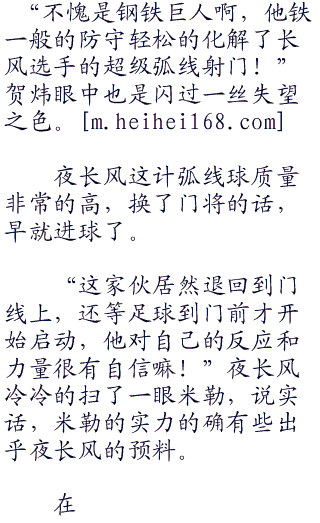 “不愧是钢铁巨人啊，他铁
一般的防守轻松的化解了长
风选手的超级弧线射门！”
贺炜眼中也是闪过一丝失望
之色。[m.heihei168.com]
夜长风这计弧线球质量
非常的高，换了门将的话，
早就进球了。
“这家伙居然退回到门
线上，还等足球到门前才开
始启动，他对自己的反应和
力量很有自信嘛！”夜长风
冷冷的扫了一眼米勒，说实
话，米勒的实力的确有些出
乎夜长风的预料。
在